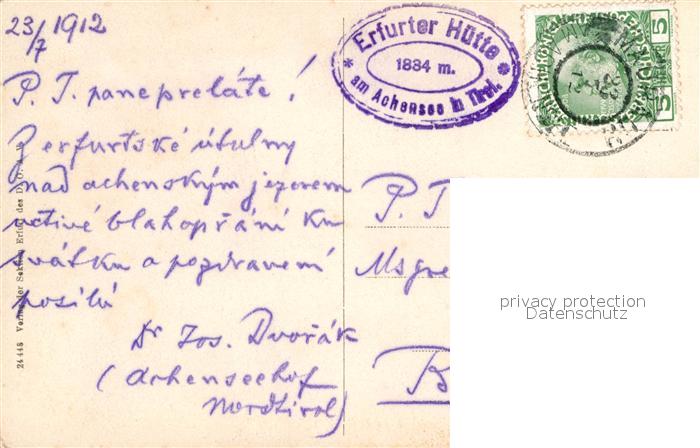 23/7 1912
P. T. pane preláte!
Z erfurtské útulny
nad achenským jezerem
uctivé blahopřání ku
svátku a pozdravení
posílá
Dr Jos. Dvořák
(Achenseehof
Nordtirol)
Erfurter Hütte
1834 m.
am Achensee in Tirol.
5 5
P. T
Msgre
B
privacy protection
Datenschutz
24448 Verlag der Sektion Erfurt des D. Ö. A. V.